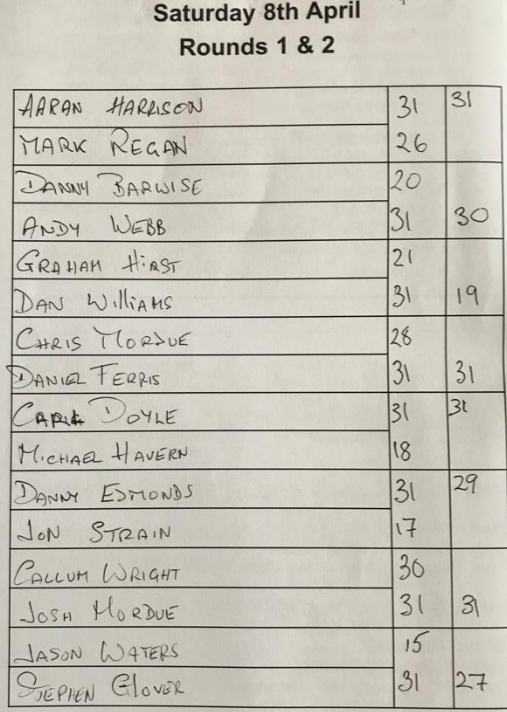 Saturday 8th April
Rounds 1 & 2
AARAN HARRISON 31 31
MARK REGAN 26
DANNY BARWISE 20
ANDY WEBB 31 30
GRAHAM HIRST 21
DAN WILLIAMS 31 19
CHRIS MORDUE 28
DANIEL FERRIS 31 31
CARL DOYLE 31 31
MICHAEL HAVERN 18
DANNY EDMONDS 31 29
JON STRAIN 17
CALLUM WRIGHT 30
JOSH MORDUE 31 31
JASON WATERS 15
STEPHEN GLOVER 31 27